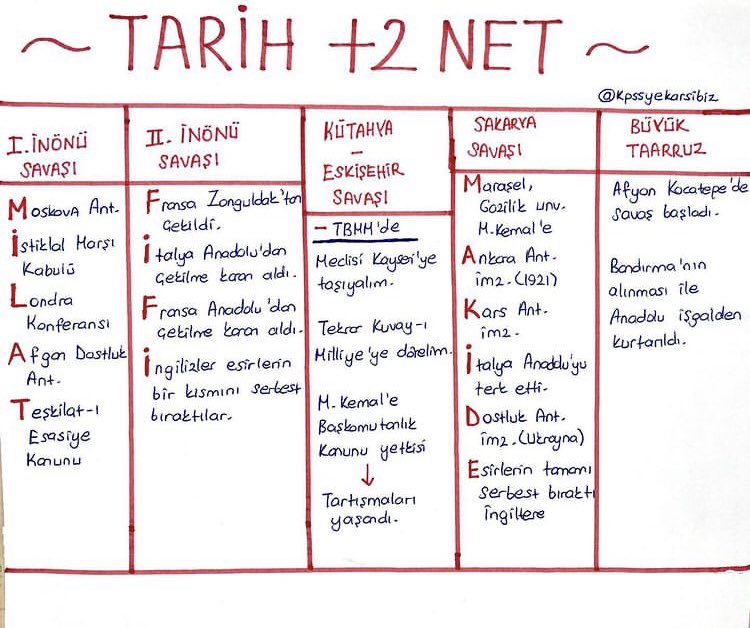 ~ TARİH +2 NET ~
@kpssyekarsibiz
I. İNÖNÜ
SAVAŞI
Moskova Ant.
İstiklal Marşı
Kabulü
Londra
Konferansı
Afgan Dostluk
Ant.
Teşkilat-ı
Esasiye
Kanunu
II. İNÖNÜ
SAVAŞI
Fransa Zonguldak'tan
çekildi.
İtalya Anadolu'dan
çekilme kararı aldı.
Fransa Anadolu'dan
çekilme kararı aldı.
İngilizler esirlerin
bir kısmını serbest
bıraktılar.
KÜTAHYA
-
ESKİŞEHİR
SAVAŞI
- TBMM'de
Meclisi Kayseri'ye
taşıyalım.
Tekrar Kuvay-ı
Milliye'ye dönelim.
M. Kemal'e
Başkomutanlık
Kanunu yetkisi
↓
Tartışmaları
yaşandı.
SAKARYA
SAVAŞI
Maraşel,
Gazilik unv.
M.Kemal'e
Ankara Ant.
imz. (1921)
Kars Ant.
imz.
İtalya Anadolu'yu
terk etti.
Dostluk Ant.
imz. (Ukrayna)
Esirlerin tamamı
serbest bıraktı
İngiltere
BÜYÜK
TAARRUZ
Afyon Kocatepe'de
savaş başladı.
Bandırma'nın
alınması ile
Anadolu işgalden
kurtarıldı.